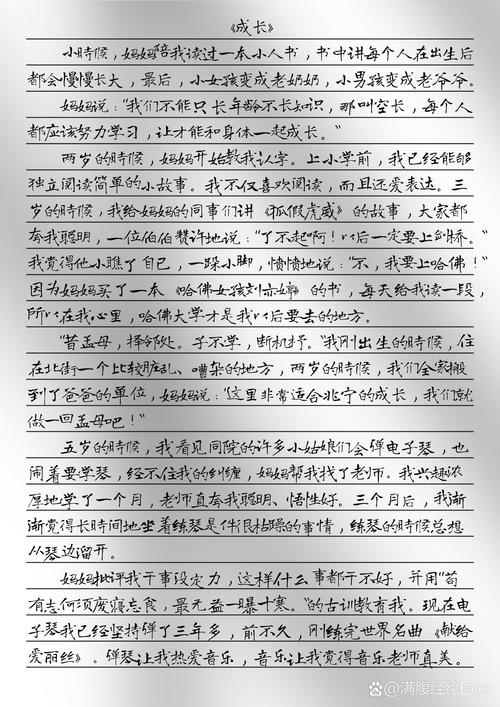 《成长》
小时候，妈妈陪我读过一本小人书，书中讲每个人在出生后
都会慢慢长大，最后，小女孩变成老奶奶，小男孩变成老爷爷。
妈妈说："我们不能只长年龄不长知识，那叫空长，每个人
都应该努力学习，让才能和身体一起成长。"
两岁的时候，妈妈开始教我认字。上小学前，我已经能够
独立阅读简单的小故事。我不仅喜欢阅读，而且还爱表达。三
岁的时候，我给妈妈的同事们讲《狐假虎威》的故事，大家都
夸我聪明，一位伯伯赞许地说："了不起啊！以后一定要上剑桥。"
我觉得他小瞧了自己，一跺小脚，愤愤地说："不，我要上哈佛！"
因为妈妈买了一本《哈佛女孩刘亦婷》的书，每天给我读一段，
所以在我心里，哈佛大学才是我以后要去的地方。
"昔孟母，择邻处。子不学，断机杼。"我刚出生的时候，住
在北街一个比较脏乱、嘈杂的地方，两岁的时候，我们全家搬
到了爸爸的单位，妈妈说："这里非常适合兆宁的成长，我们就
做一回孟母吧！"
五岁的时候，我看见同院的许多小姑娘们会弹电子琴，也
闹着要学琴，经不住我的纠缠，妈妈帮我找了老师。我兴趣浓
厚地学了一个月，老师直夸我聪明、悟性好。三个月后，我渐
渐觉得长时间地坐着练琴是件很枯躁的事情，练琴的时候总想
从琴边溜开。
妈妈批评我干事没定力，这样什么事都干不好，并用"苟
有志何须废寝忘食，最无益一曝十寒。"的古训教育我。现在电
子琴我已经坚持弹了三年多，前不久，刚练完世界名曲《献给
爱丽丝》。弹琴让我热爱音乐，音乐让我觉得音乐老师真美。